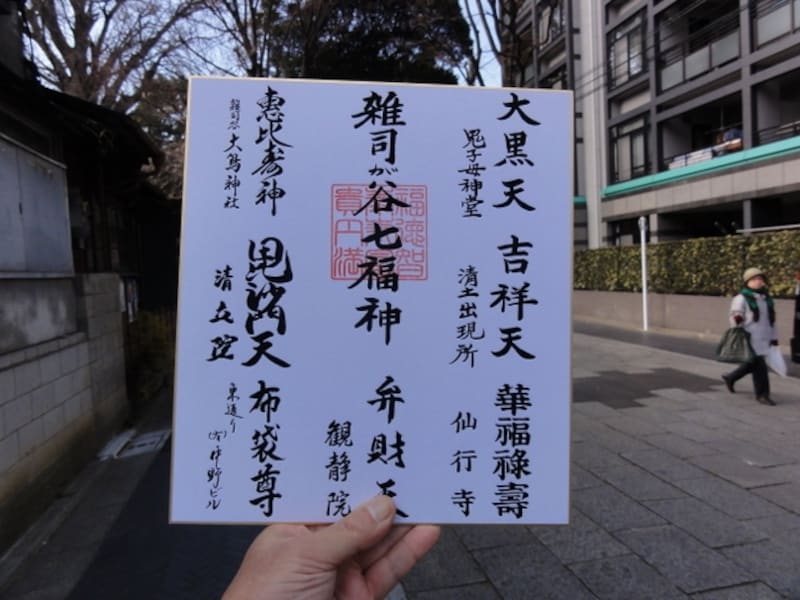 大黒天
鬼子母神堂
吉祥天
清土出現所
華福祿壽
仙行寺
雑司が谷七福神
福徳智
貴円満
弁財天
観静院
恵比寿神
雑司谷大鳥神社
毘沙門天
清立院
布袋尊
東通り
(有)中野ビル